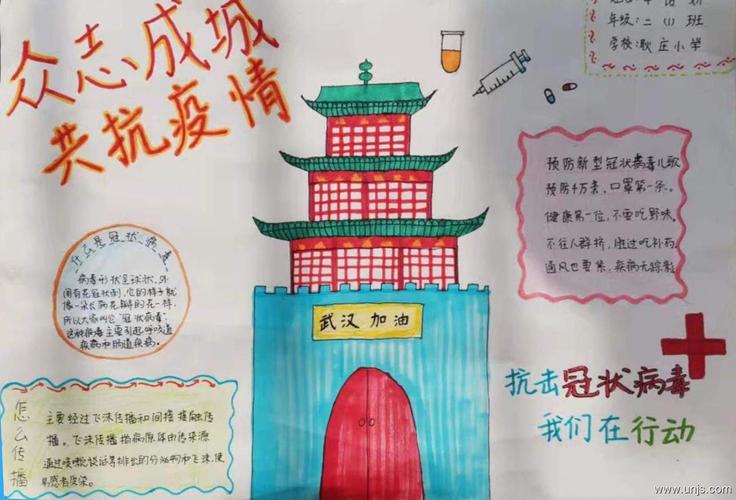 众志成城
共抗疫情
年级:二(1)班
学校:耿庄小学
预防新型冠状病毒儿歌
预防千万条,口罩第一条。
健康第一位,不要吃野味。
不往人群挤,胜过吃补药
通风也要紧,疾病无踪影
什么是冠状病毒
病毒形状呈球状,外
围有花冠状刺,它的样子就
像一朵长满花瓣的花一样。
所以大家叫它"冠状病毒"
这种病毒主要引起呼吸道
疾病和肠道疾病。
武汉加油
抗击冠状病毒
我们在行动
怎么传播
主要经过飞沫传播和间接接触传
播。飞沫传播指病原体由传染源
通过咳嗽谈话等排出的分泌物和飞沫,使
易感者感染。
www.unjs.com